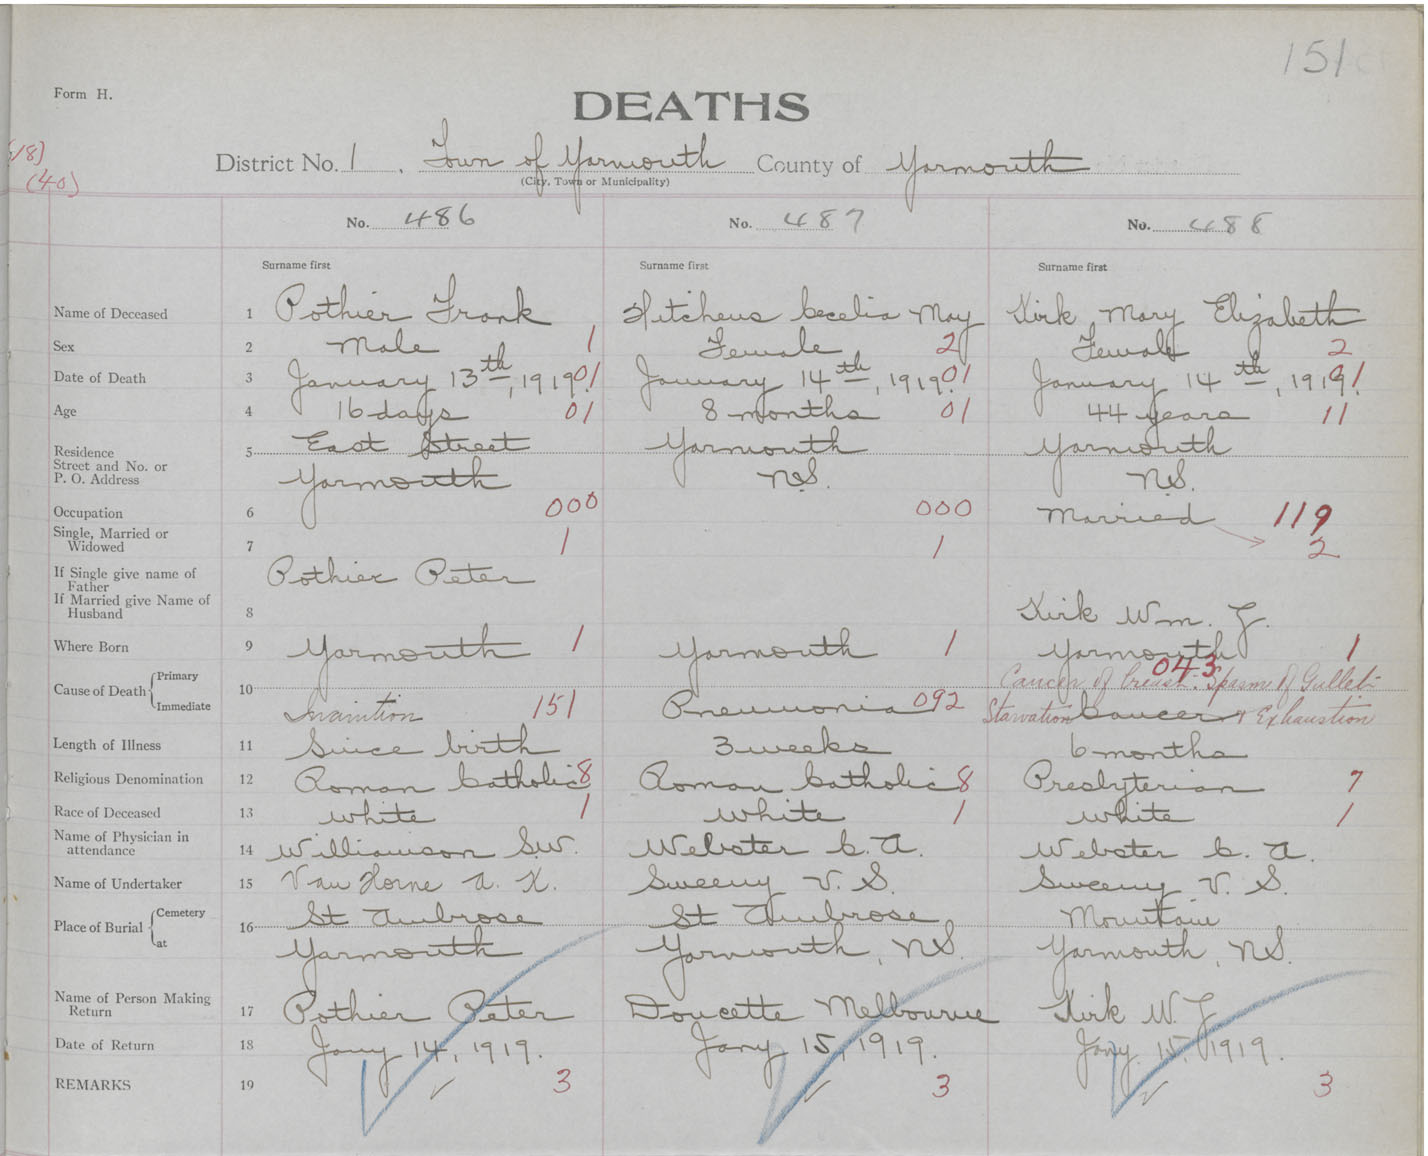 151
Form H.
DEATHS
(18)
(40)
District No. 1. Town of Yarmouth County of Yarmouth
(City, Town or Municipality)
No. 486 No. 487 No. 488
Surname first Surname first Surname first
Name of Deceased 1 Pothier Frank Hitchens Cecelia May Kirk Mary Elizabeth
Sex 2 Male 1 Female 2 Female 2
Date of Death 3 January 13th, 1919. 01 January 14th, 1919. 01 January 14th, 1919. 01
Age 4 16 days 01 8 months 01 44 years 11
Residence 5 East Street Yarmouth Yarmouth
Street and No. or
P. O. Address Yarmouth N.S. N.S.
Occupation 6 000 000 Married 119
Single, Married or
Widowed 7 1 1 2
If Single give name of
Father Pothier Peter
If Married give Name of
Husband 8 Kirk Wm. J.
Where Born 9 Yarmouth 1 Yarmouth 1 Yarmouth 1
043
Cause of Death Primary 10 Cancer of breast. Spasm of Gullet
Immediate Inanition 151 Pneumonia 092 Starvation Cancer & Exhaustion
Length of Illness 11 Since birth 3 weeks 6 months
Religious Denomination 12 Roman Catholic 8 Roman Catholic 8 Presbyterian 7
Race of Deceased 13 White 1 White 1 White 1
Name of Physician in
attendance 14 Williamson S.W. Webster C. A. Webster C. A.
Name of Undertaker 15 Van Horne A. K. Sweeny V. S. Sweeny V. S.
Place of Burial Cemetery 16 St Ambrose St Ambrose Mountain
at Yarmouth Yarmouth, N.S. Yarmouth, N.S.
Name of Person Making
Return 17 Pothier Peter Doucette Melbourne Kirk W. J.
Date of Return 18 Jany 14, 1919. Jany 15, 1919. Jany. 15. 1919.
REMARKS 19 3 3 3